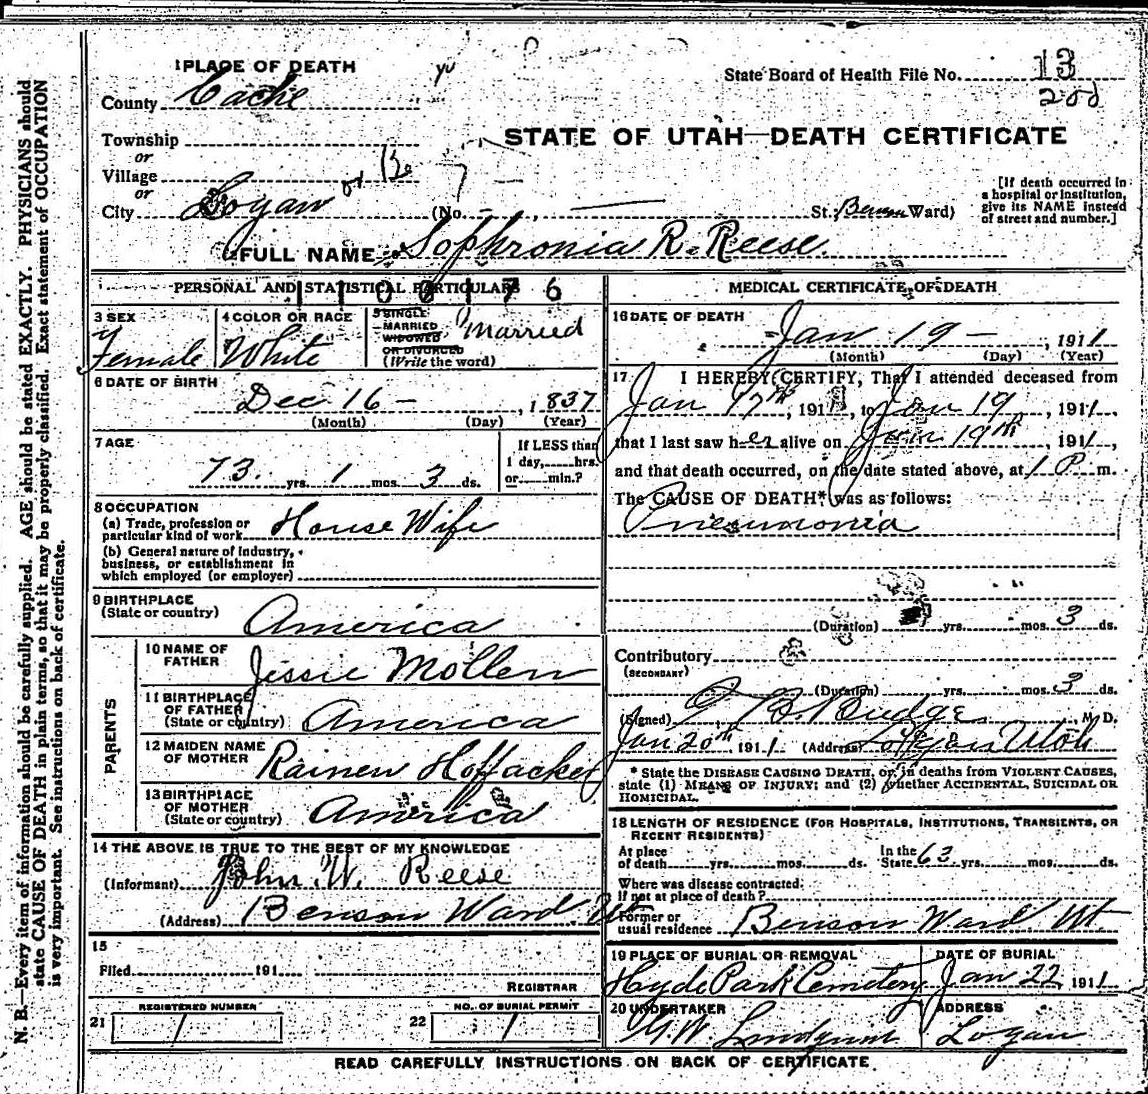 1 PLACE OF DEATH
County Cache
Township
or
Village
or
City Logan
State Board of Health File No. 13
200
STATE OF UTAH—DEATH CERTIFICATE
(No. St. Benson Ward)
[If death occurred in
a hospital or institution,
give its NAME instead
of street and number.]
2 FULL NAME Sophronia R. Reese.
PERSONAL AND STATISTICAL PARTICULARS
1100176
3 SEX
Female
4 COLOR OR RACE
White
5 SINGLE
MARRIED
WIDOWED
OR DIVORCED
(Write the word)
Married
6 DATE OF BIRTH
Dec 16 - , 1837
(Month) (Day) (Year)
7 AGE
73. yrs. 1 mos. 3 ds.
If LESS than
1 day, hrs.
or min.?
8 OCCUPATION
(a) Trade, profession or
particular kind of work House Wife
(b) General nature of industry,
business, or establishment in
which employed (or employer)
9 BIRTHPLACE
(State or country) America
PARENTS
10 NAME OF
FATHER Jessie Mollen
11 BIRTHPLACE
OF FATHER
(State or country) America
12 MAIDEN NAME
OF MOTHER Rainen Hoffacker
13 BIRTHPLACE
OF MOTHER
(State or country) America
14 THE ABOVE IS TRUE TO THE BEST OF MY KNOWLEDGE
(Informant) John. W. Reese
(Address) Benson Ward Ut
15
Filed 191
REGISTRAR
REGISTERED NUMBER
21
NO. OF BURIAL PERMIT
22
MEDICAL CERTIFICATE OF DEATH
16 DATE OF DEATH
Jan 19 - , 1911
(Month) (Day) (Year)
17 I HEREBY CERTIFY, That I attended deceased from
Jan 17th, 1911, to Jan 19, 1911,
that I last saw her alive on Jan 19th, 1911,
and that death occurred, on the date stated above, at 1 P m.
The CAUSE OF DEATH* was as follows:
Pneumonia
(Duration) yrs. mos. 3 ds.
Contributory
(SECONDARY)
(Duration) yrs. mos. 3 ds.
(Signed) Budge M D.
Jan 20th, 1911 (Address) Logan Utah
* State the DISEASE CAUSING DEATH, or, in deaths from VIOLENT CAUSES,
state (1) MEANS OF INJURY; and (2) whether ACCIDENTAL, SUICIDAL OR
HOMICIDAL.
18 LENGTH OF RESIDENCE (FOR HOSPITALS, INSTITUTIONS, TRANSIENTS, OR
RECENT RESIDENTS)
At place
of death yrs. mos. ds.
In the
State 63 yrs. mos. ds.
Where was disease contracted:
If not at place of death?
Former or
usual residence Benson Ward Ut.
19 PLACE OF BURIAL OR REMOVAL
Hyde Park Cemetery
DATE OF BURIAL
Jan 22, 1911
20 UNDERTAKER
Lundquist
ADDRESS
Logan
READ CAREFULLY INSTRUCTIONS ON BACK OF CERTIFICATE
N. B.—Every item of information should be carefully supplied. AGE should be stated EXACTLY. PHYSICIANS should
state CAUSE OF DEATH in plain terms, so that it may be properly classified. Exact statement of OCCUPATION
is very important. See instructions on back of certificate.